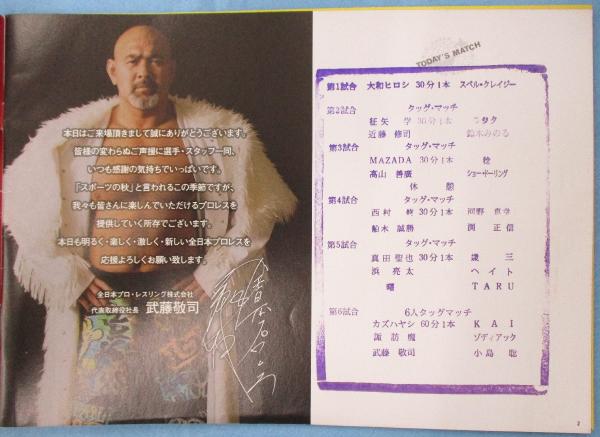 本日はご来場頂きまして誠にありがとうございます。
皆様の変わらぬご声援に選手・スタッフ一同、
いつも感謝の気持ちでいっぱいです。
「スポーツの秋」と言われるこの季節ですが、
我々も皆さんに楽しんでいただけるプロレスを
提供していく所存でございます。
本日も明るく・楽しく・激しく・新しい全日本プロレスを
応援よろしくお願い致します。
全日本プロ・レスリング株式会社
代表取締役社長 武藤敬司
TODAY'S MATCH
第1試合 大和ヒロシ 30分1本 スペル・クレイジー
第2試合 タッグ・マッチ
征矢 学 30分1本
近藤 修司 鈴木みのる
第3試合 タッグ・マッチ
MAZADA 30分1本 稔
高山 善廣 ショー・ドーリング
休憩
第4試合 タッグ・マッチ
西村 修 30分1本 河野 真幸
船木 誠勝 渕 正信
第5試合 タッグ・マッチ
真田 聖也 30分1本
浜 亮太 ヘイト
曙 TARU
第6試合 6人タッグマッチ
カズハヤシ 60分1本 KAI
諏訪魔 ゾディアック
武藤 敬司 小島 聡
2